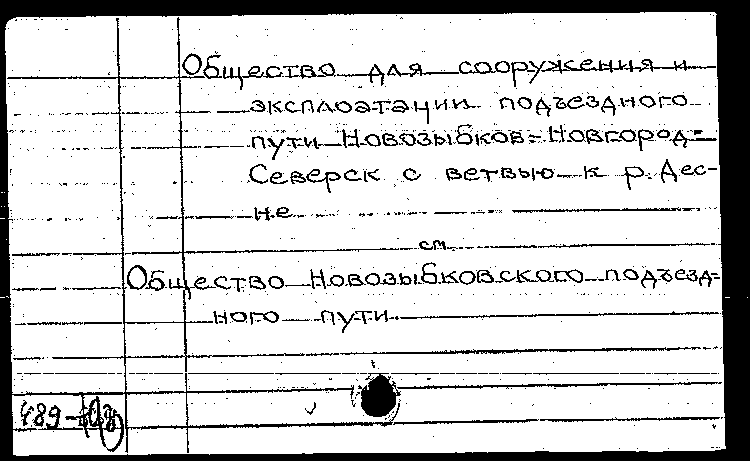 Общество для сооружения и
эксплоатации подъездного
пути Новозыбков=Новгород=
Северск с ветвью к р. Дес-
не
см.
Общество Новозыбковского подъезд=
ного пути.
489-